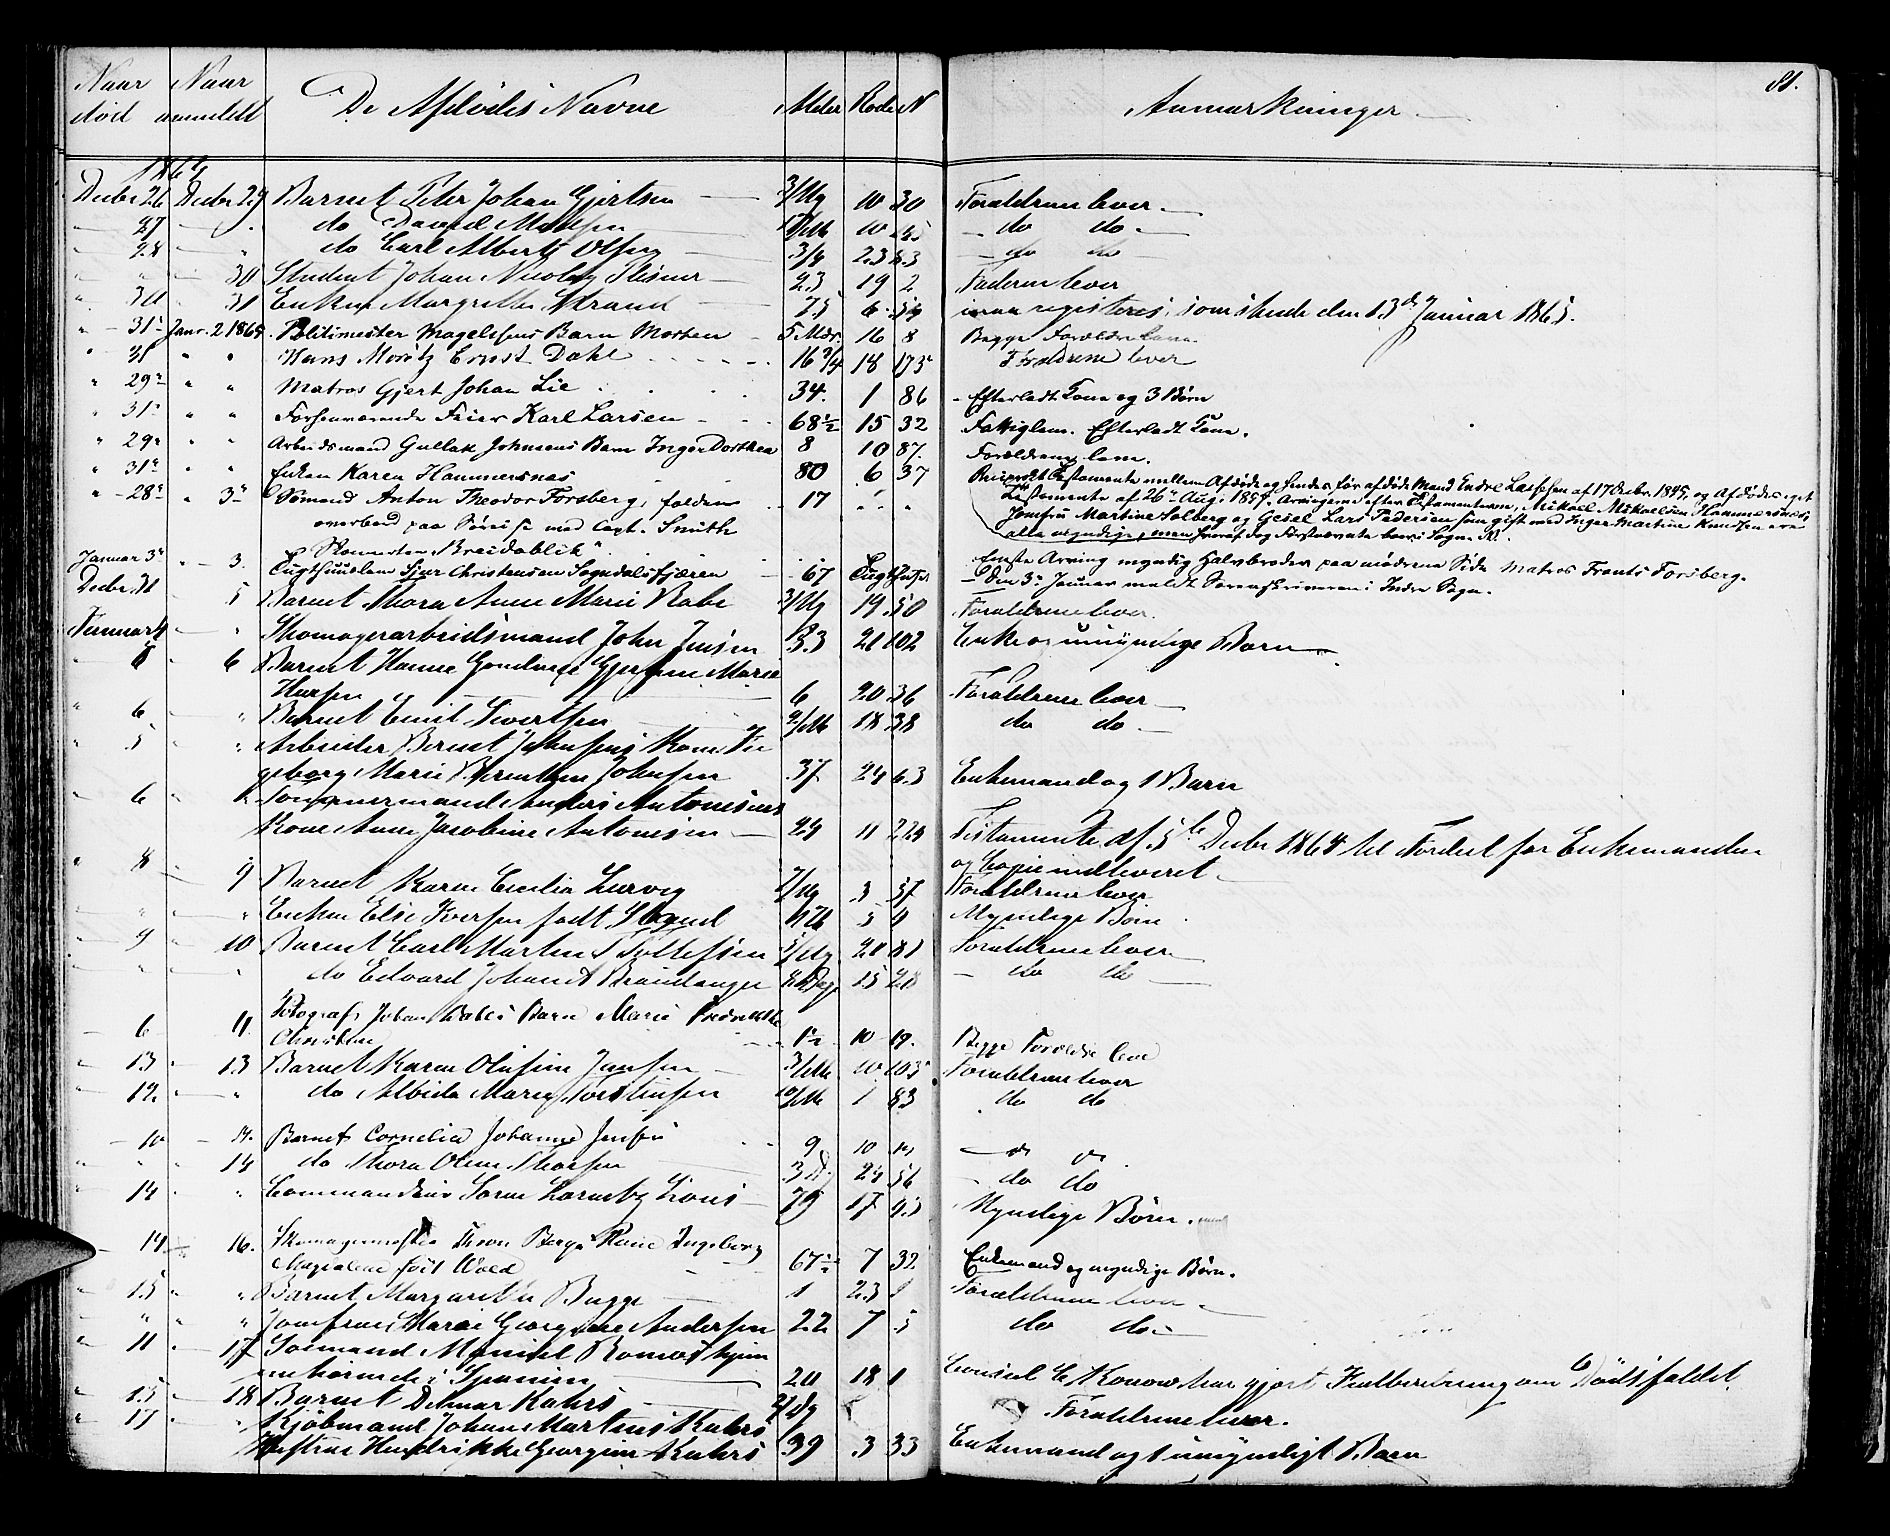 81.
Naar død Naar anmeldt De Afdødes Navne Alder Rode N Anmærkninger
1864
Decbr 26 Decbr 29 Barnet Peter Johan Gjertsen 3/Ug 10 30 Forældrene lever
27 do David Madsen 10 do do
28 do Carl Albert Olsen 3/4 23 do do
30 Student Johan Nicolay 23 19 2 Faderen lever
30 31 Enken Margrethe Strand 75 6 54 maa registeres, som skede den 13de Januar 1865.
31 Janr. 2 1865. Politimester Magelssens Barn Morten 5 Mdr. 16 8 Begge Forældre leve
31 " " Hans Moritz Ernst Dahl 16 3/4 18 173 Forældrene lever
" 29 " " Matros Gjert Johan Lie 34. 1 86 Efterladt Kone og 3 Børn
" 31 " " Forhenværende Feier Karl Larsen 68 1/2 15 32 Fattiglem. Efterladt Kone.
" 29 " " Arbeidsmand Gullak Johnsens Barn Inger Dorthea 8 10 87. Forældrene leve.
" 31 " " Enken Karen Hammersnes 80 6 37 Reciprokt Testamente mellem Afdøde og hendes før afdøde Mand Endre Lassesen af 17 Decbr. 1845, og Afdødes eget
Testamente af 26 Aug. 1857. Arvingerne efter Testamenterne, Mikael Mikaelsen Hammersnæs
Jomfru Martine Solberg og Gesel Lars Pedersen som gift med Inger Martine Knudsen ere
alle myndige, men hvoraf dog Førstnævnte boer i Sogn.
" 28 " 3 Sømand Anton Theodor Forsberg, falden 17 " " "
overbord paa Reise med Capt. Smith
Skonnerten "Breidablik".
Eneste Arving myndig Halvbroder paa mødrene Side Matros Frants Forsberg.
Januar 3 " 3. Tugthuuslem Sjur Christensen Sogndalsfjæren 67 Tugthuset Den 3 Januar meldt Sorenskriveren i Indre Sogn.
Decbr. 31 5 Barnet Thora Anne Marie Rabe 3/Ug 19 50 Forældrene lever.
Januar 4 " Skomagerarbeidsmand John Jensen 33 21 102 Enke og umyndige Børn
" 5 " 6 Barnet Hanne Gjertine Marie
Hansen 6 20 36 Forældrene lever
" 6 " Barnet Emil Sivertsen 2/M 18 38 do do
5 " Arbeider Berent Johnsens Kone In-
geborg Marie Berentine Johnsen 37 24 63 Enkemand og 1 Barn
6 " Tømmermand Anders Antonisens
Kone Anne Jacobine Antonisen 24 11 224 Testamente af 5te Decbr 1864 til Fordel for Enkemanden
og Copie indleveret
8 9 Barnet Karen Cecilia Lervig 3 57 Forældrene lever
" " Enken Else Iversen født Strand 3 9 Myndige Børn
" 9 10 Barnet Carl Martin Tollefsen 21 81 Forældrene lever
" " do Edvard Johan Brandanger 8 Dage 15 28 do do
6 11. Fotograf Johan Dahls Barn Marie Fredrikke
Christine 1 1/2 10 19. Begge Forældre leve
13 13 Barnet Karen Olufine Jansen 3/M 10 103 Forældrene lever
12. " do Albida Marie Torstensen 10/M 1 83 do do
10 14. Barnet Cornelia Johanne Jensen 9 10 do do
" " 14 do Thora Oline Thorsen 3 D 24 56 do do
" 14 " Commandeur Søren Lorentz Lous 79 17 Myndige Børn.
14 16. Skomagermester Thron Berge Kone Ingeborg
Magdalene født Wold 67 1/2 7 32 Enkemand og myndige Børn.
" 15 " Barnet Margarethe Bugge 1 23 1 Forældrene lever
" " " Jomfrue Marie Georgine Andersen 22 7 5 do do
" 11 17 Sømand Romershjem-
i Spanien 20 18 1 Consul C. Konow har gjort Indberetning om Dødsfaldet.
" 15 18 Barnet Ditmar Kahrs Forældrene lever.
" 17 Kjøbmand Johan Martens Kahrs
Hustrue Hendrikke Georgine Kahrs 39 3 33 Enkemand og 1 umyndigt Barn